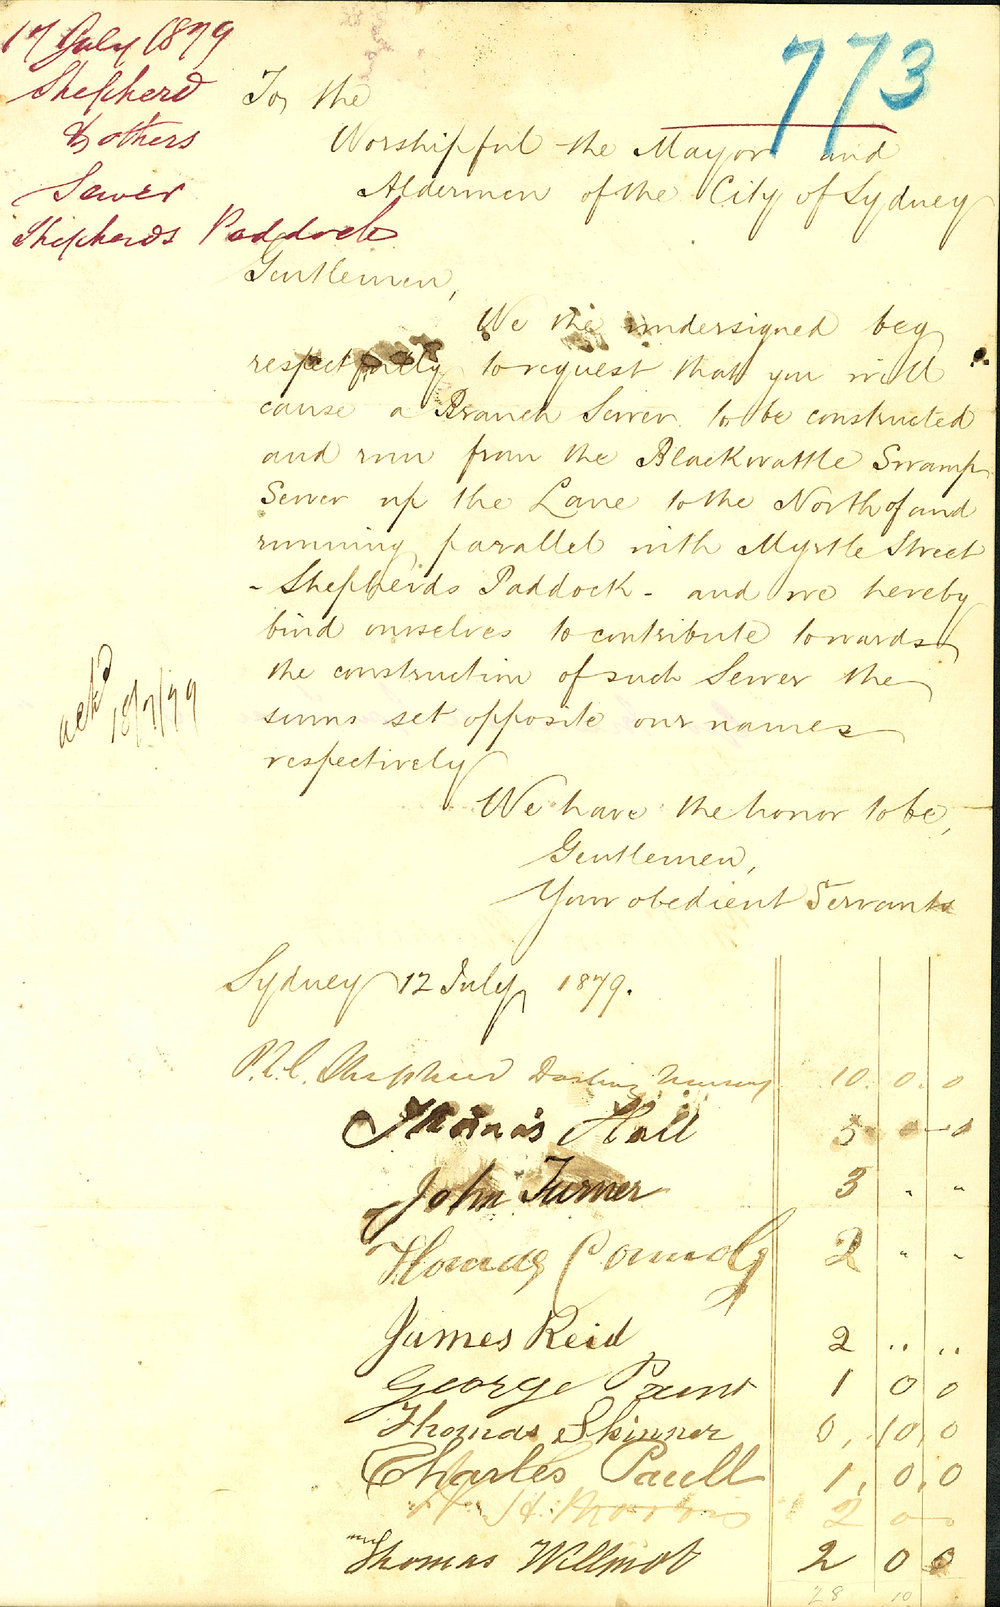 17 July 1879
Shepherd
& others
Sewer
Shepherds Paddock
773
To, the
Worshipful the Mayor and
Aldermen of the City of Sydney
Gentlemen,
We the undersigned beg
respectfully to request that you will
cause a Branch Sewer to be constructed
and run from the Blackwattle Swamp
Sewer up the Lane to the North of and
running parallel with Myrtle Street
- Shepherds Paddock - and we hereby
bind ourselves to contribute towards
the construction of such Sewer the
sums set opposite our names
respectively
ackd 18/7/79
We have the honor to be,
Gentlemen,
Your obedient Servants
Sydney 12 July 1879.
Shepherd Darling Nursery 10. 0. 0
Thomas Hall 5 0-0
John Turner 3 " "
Thomas Connoly 2 " "
James Reid 2 .. ..
George 1 0 0
Thomas Skinner 0, 10, 0
Charles Pauell 1, 0, 0
H. Morris 2 0 0
Thomas Willmot 2 0 0
28 10